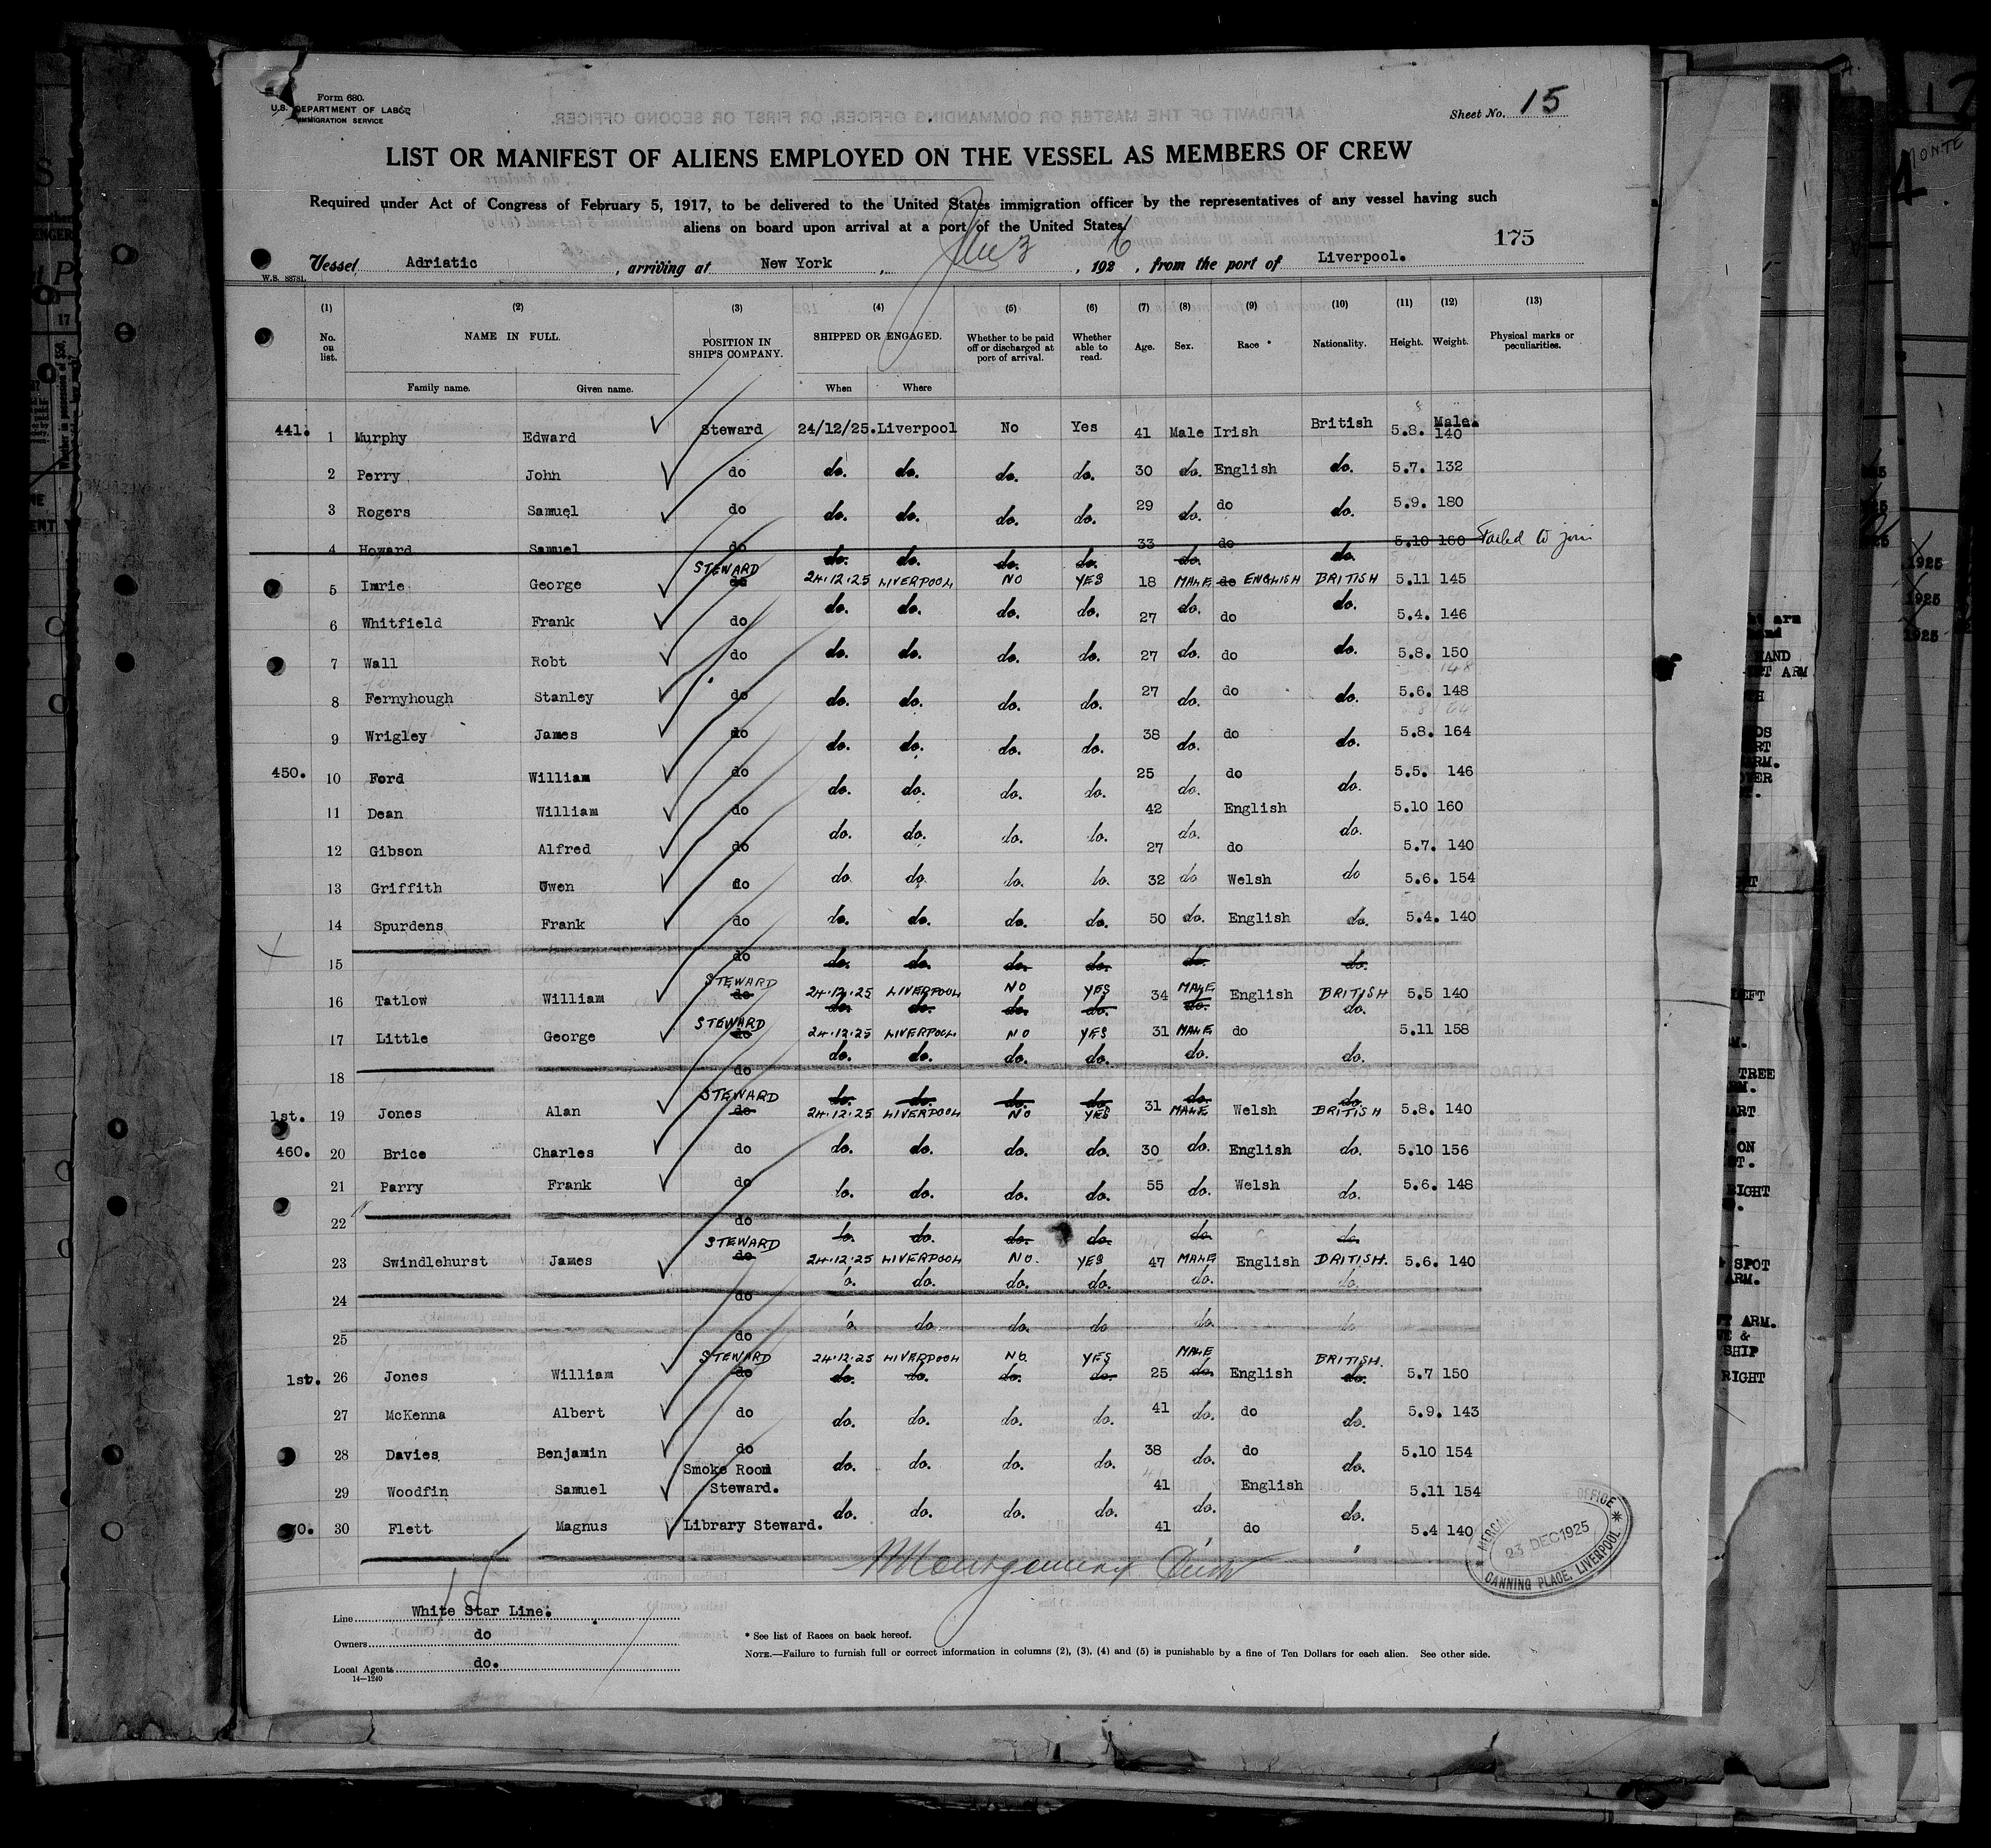 Form 680.
U.S. DEPARTMENT OF LABOR
IMMIGRATION SERVICE
Sheet No. 15
LIST OR MANIFEST OF ALIENS EMPLOYED ON THE VESSEL AS MEMBERS OF CREW
Required under Act of Congress of February 5, 1917, to be delivered to the United States immigration officer by the representatives of any vessel having such
aliens on board upon arrival at a port of the United States.
175
Vessel Adriatic, arriving at New York, 3, 1926, from the port of Liverpool.
W.S. 88781.
(1) (2) (3) (4) (5) (6) (7) (8) (9) (10) (11) (12) (13)
No. on list. NAME IN FULL. POSITION IN SHIP'S COMPANY. SHIPPED OR ENGAGED. Whether to be paid off or discharged at port of arrival. Whether able to read. Age. Sex. Race * Nationality. Height. Weight. Physical marks or peculiarities.
Family name. Given name. When Where
441. 1 Murphy Edward Steward 24/12/25. Liverpool No Yes 41 Male Irish British 5.8. Male. 140
2 Perry John do do. do. do. do. 30 do. English do. 5.7. 132
3 Rogers Samuel do do. do. do. do. 29 do. do do. 5.9. 180
4 Howard Samuel do do. do. do. do. 33 do. do do. 5.10 160 Failed to join
5 Imrie George STEWARD do 24.12.25 LIVERPOOL NO YES 18 MALE do ENGLISH BRITISH 5.11 145
6 Whitfield Frank do do. do. do. do. 27 do. do do. 5.4. 146
7 Wall Robt do do. do. do. do. 27 do. do do. 5.8. 150
8 Fernyhough Stanley do do. do. do. do. 27 do. do do. 5.6. 148
9 Wrigley James do do. do. do. do. 38 do. do do. 5.8. 164
450. 10 Ford William do do. do. do. do. 25 do. do do. 5.5. 146
11 Dean William do do. do. do. do. 42 do. English do. 5.10 160
12 Gibson Alfred do 27 do 5.7. 140
13 Griffith Owen do do. do. do. do. 32 do Welsh do 5.6. 154
14 Spurdens Frank do do. do. do. do. 50 do. English do. 5.4. 140
15 do do. do. do. do. do. do.
16 Tatlow William STEWARD do 24.12.25 LIVERPOOL NO YES 34 MALE English BRITISH 5.5 140
do. do. do. do. do. do.
17 Little George STEWARD do 24.12.25 LIVERPOOL NO YES 31 MALE do 5.11 158
do. do. do. do. do. do.
18 do
STEWARD do. do. do. do. do. do.
1st. 19 Jones Alan do 24.12.25 LIVERPOOL NO YES 31 MALE Welsh BRITISH 5.8. 140
460. 20 Brice Charles do do. do. do. do. 30 do. English do. 5.10 156
21 Parry Frank do do. do. do. do. 55 do. Welsh do. 5.6. 148
22 do do. do. do. do. do. do.
23 Swindlehurst James STEWARD do 24.12.25 LIVERPOOL NO. YES 47 MALE English BRITISH. 5.6. 140
24 do do. do. do. do. do. do.
25 do do. do do. do do do
1st. 26 Jones William STEWARD do 24.12.25 LIVERPOOL NO. YES 25 MALE English BRITISH. 5.7 150
do. do. do. do. do. do.
27 McKenna Albert do do. do. do. do. 41 do. do do. 5.9. 143
28 Davies Benjamin do do. do. do. do. 38 do. do do. 5.10 154
29 Woodfin Samuel Smoke Room Steward. do. do. do. do. 41 do. English do. 5.11 154
30 Flett Magnus Library Steward. 41 do 5.4 140
MERCAN OFFICE
23 DEC 1925
CANNING PLACE, LIVERPOOL
Line White Star Line.
Owners do
Local Agents do.
14—1240
* See list of Races on back hereof.
NOTE.—Failure to furnish full or correct information in columns (2), (3), (4) and (5) is punishable by a fine of Ten Dollars for each alien. See other side.